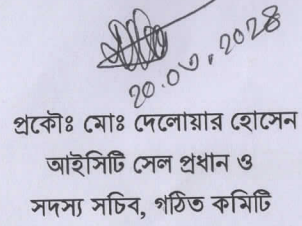 ২০.০৩.২০২৪
প্রকৌঃ মোঃ দেলোয়ার হোসেন
আইসিটি সেল প্রধান ও
সদস্য সচিব, গঠিত কমিটি